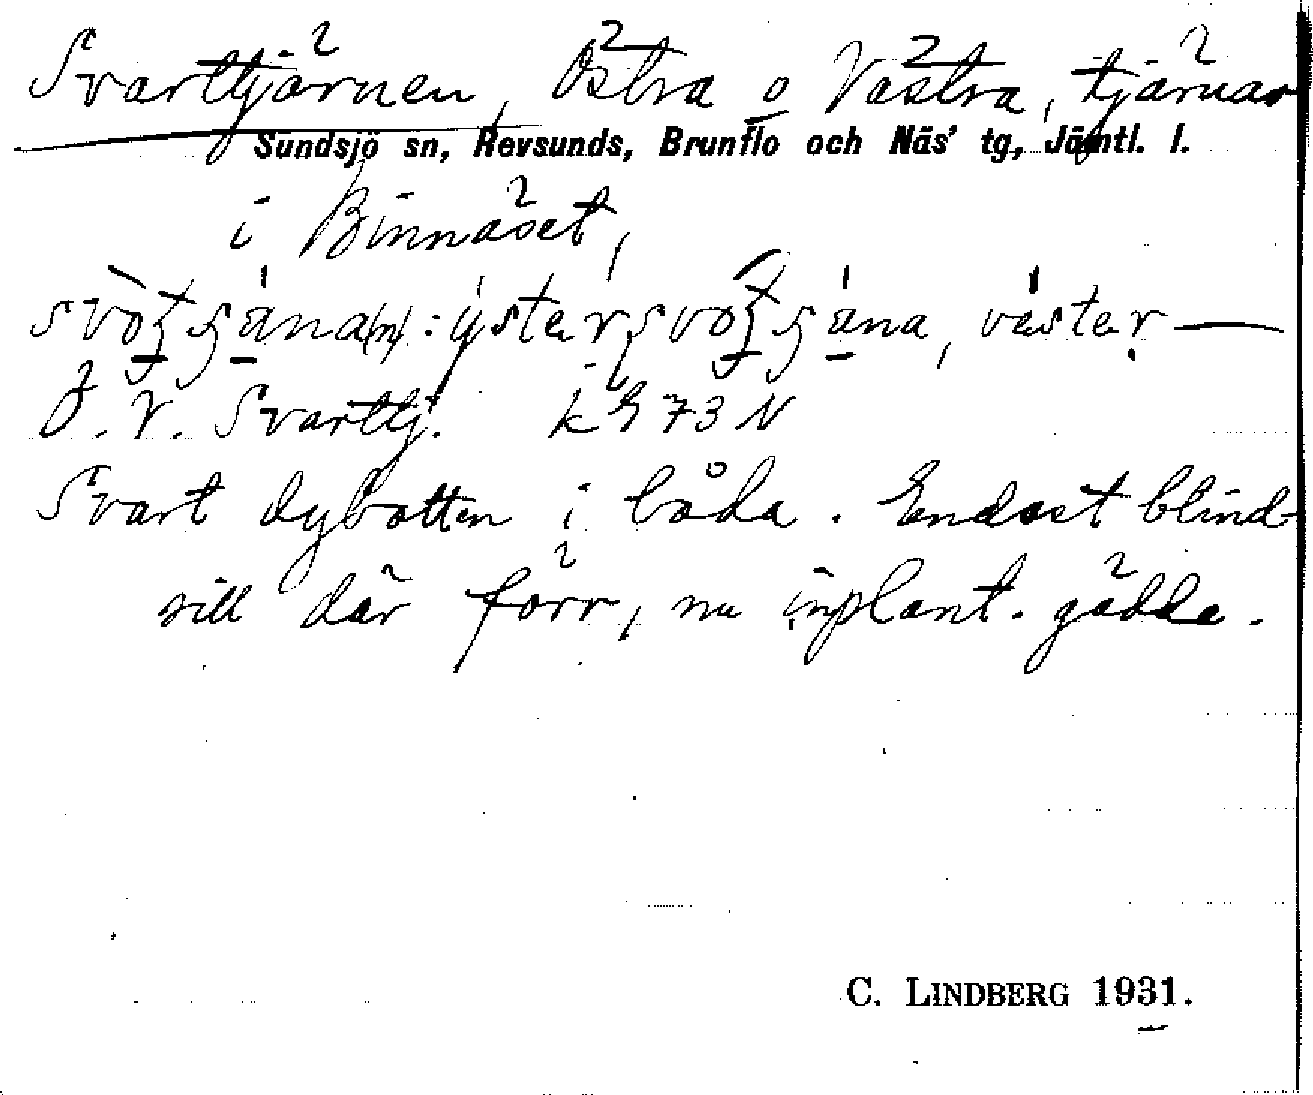 Svarttjärnen, Östra o Västra, tjärnar
Sundsjö sn, Revsunds, Brunflo och Näs' tg, Jämtl. l.
i Binnäset,
Ö. V. Svarttj. k 973 N
Svart dybotten i båda. Endast blind-
sill där förr, nu inplant. gädda.
C. LINDBERG 1931.